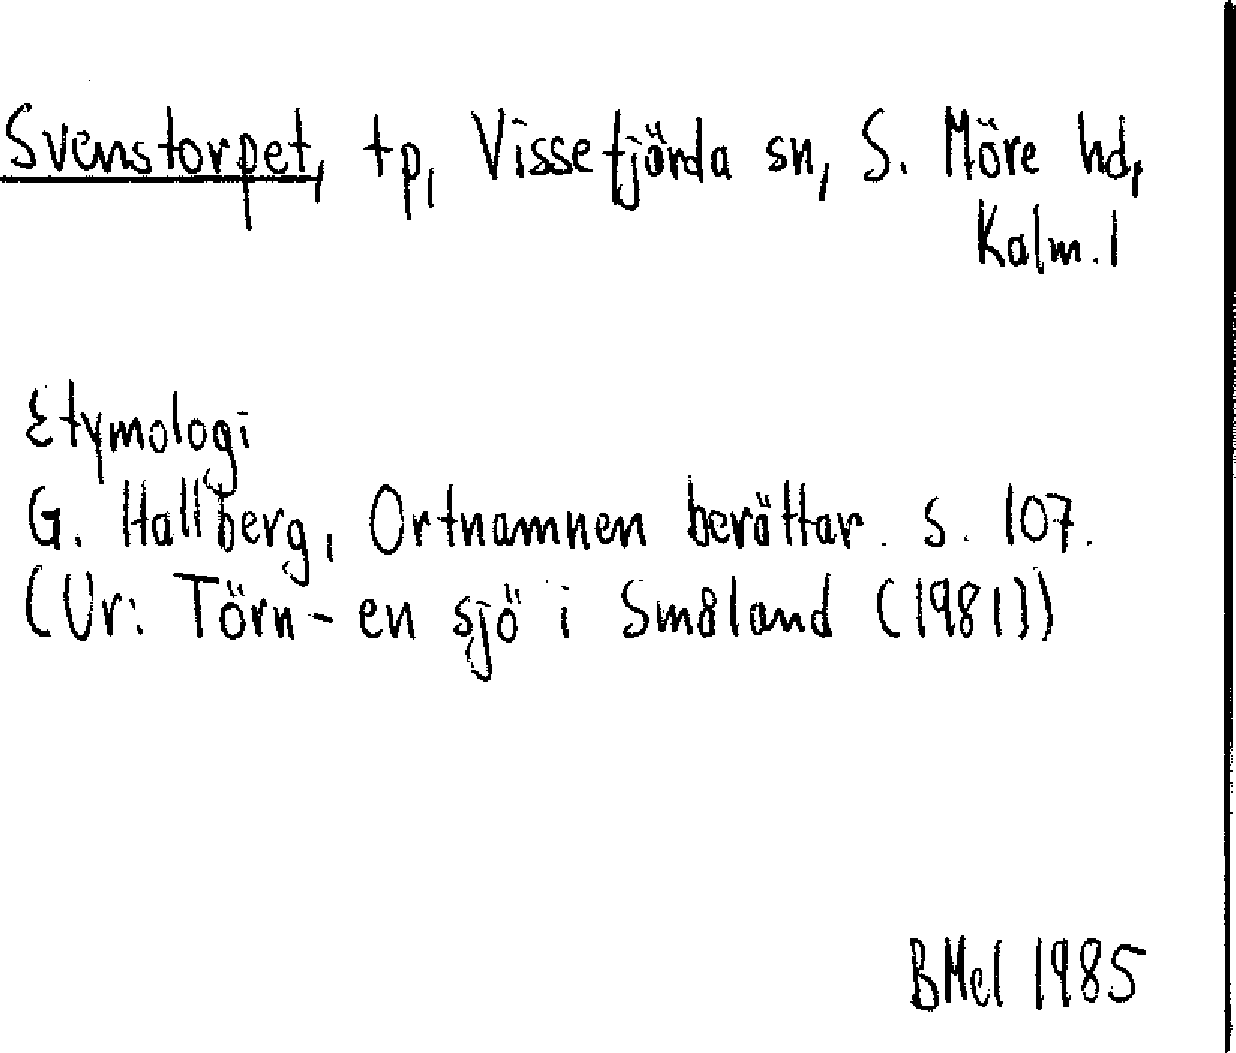 Svenstorpet, tp, Vissefjärda sn, S. Möre hd,
Kalm. l
Etymologi
G. Hallberg, Ortnamnen berättar. s. 107.
(Ur: Törn - en sjö i Småland (1981))
BMel 1985